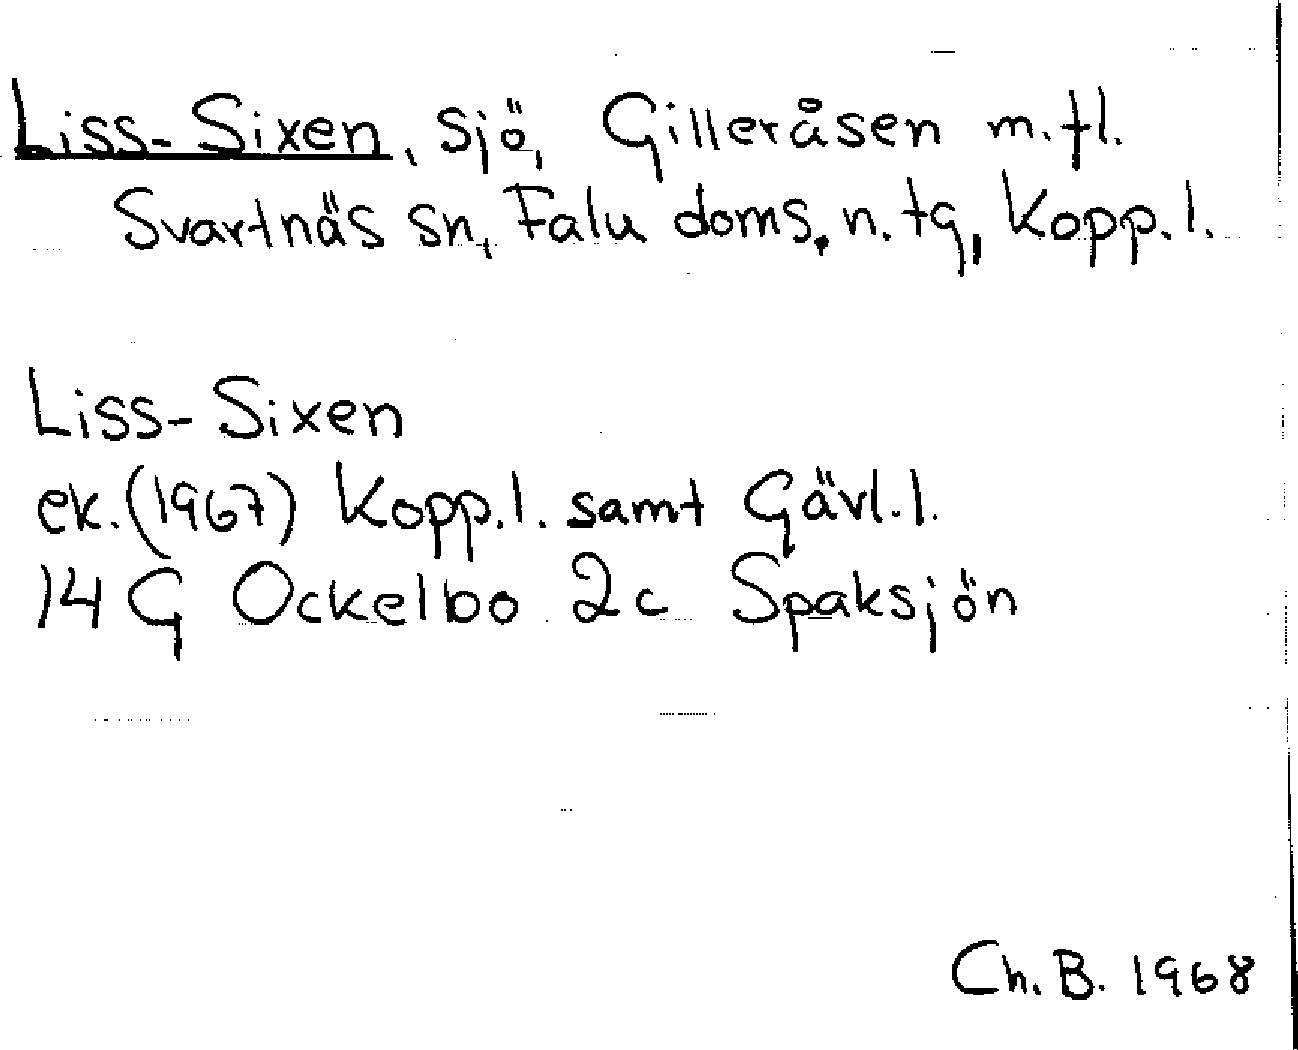 Liss-Sixen, sjö, Gilleråsen m.fl.
Svartnäs sn, Falu doms. n. tg, Kopp. l.
Liss-Sixen
ek. (1967) Kopp. l. samt Gävl. l.
14 G Ockelbo 2c Spaksjön
Ch. B. 1968